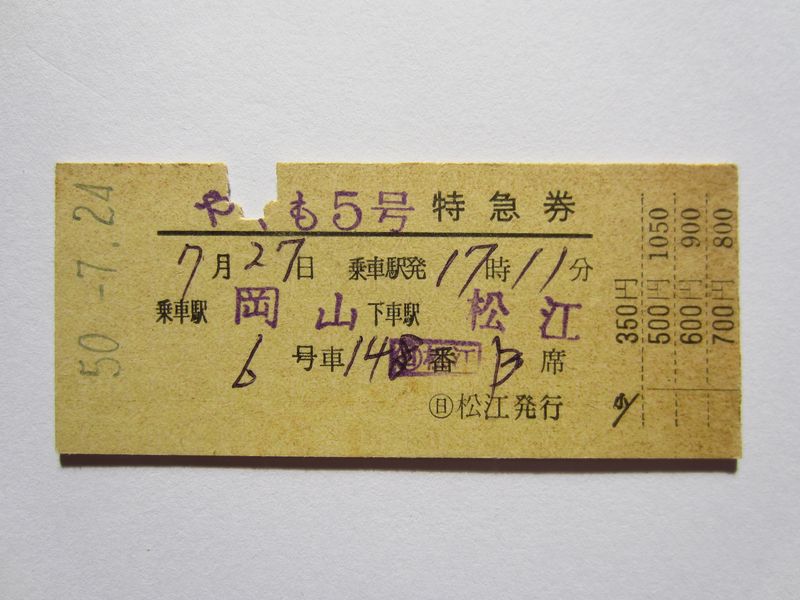 50.-7.24
や、も5号 特急券
7月27日 乗車駅発17時11分
乗車駅 岡山 下車駅 松江
6号車14 番 席
㊐松江発行
350円
500円 1050
600円 900
700円 800